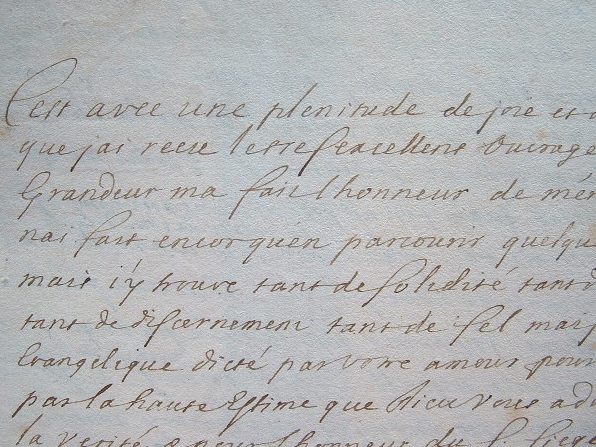 Cest avec une plenitude de joie et
que jai receu lexcellent Ouvrage
Grandeur ma fait lhonneur de
nai fait encor quen parcourir quelqu
mais i'y trouve tant de solidité tant
tant de discernement tant de sel mais
Evangelique dicté par votre amour pour
par la haute Estime que Dieu vous a
la verité pour lhonneur du S. Siege